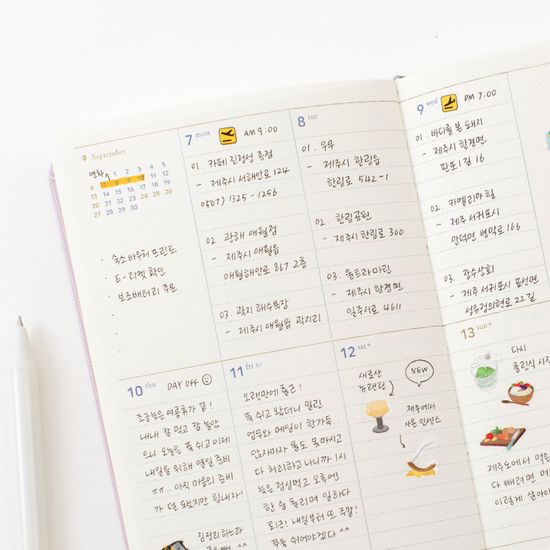 9 September
연차
1 2 3 4 5
6 7 8 9 10 11 12
13 14 15 16 17 18 19
20 21 22 23 24 25 26
27 28 29 30
· 숙소 바우처 프린트
· E-티켓 확인
· 보조배터리 주문
7 mon
AM 9:00
01. 카페 진정성 종점
- 제주시 서해안로 124
0507) 1325-1256
02. 광해 애월점
- 제주시 애월읍
애월해안로 867 2층
03. 곽지 해수욕장
- 제주시 애월읍 곽지리
8 tue
01. 우무
- 제주시 한림읍
한림로 542-1
02. 한림공원
- 제주시 한림로 300
03. 울트라마린
- 제주시 한경면
일주서로 4611
9 wed
PM 7:00
01. 바다를 본 돼지
- 제주시 한경면
판포1길 16
02. 카멜리아힐
- 제주 서귀포시
안덕면 병악로 166
03. 강수상회
- 제주 서귀포시 표선면
성읍정의현로 22길
10 thu
DAY OFF
오늘은 여름휴가 끝!
내내 잘 먹고 잘 놀았
으니 오늘은 푹 쉬고 이제
내일을 위해 열일 준비
ㅠㅠ.. 아직 마음의 준비
가 덜 됐지만 힘내자!
집정리하느라
11 fri
오랜만에 출근!
푹 쉬고 왔더니 밀린
업무와 메일이 한가득..
앉자마자 물도 못마시고
다 처리하고 나니까 1시
늦은 점심먹고 오후엔
한 숨 돌리며 일하다
퇴근! 내일부터 또 주말!
푸욱 쉬어야겠다 ^^
12 sat
새로산
뉴랜턴
NEW
제주에서
사온 인센스
13 sun
다시
클린식 시작
제주도에서 먹은
다 빼려면 며
이렇게 살아야